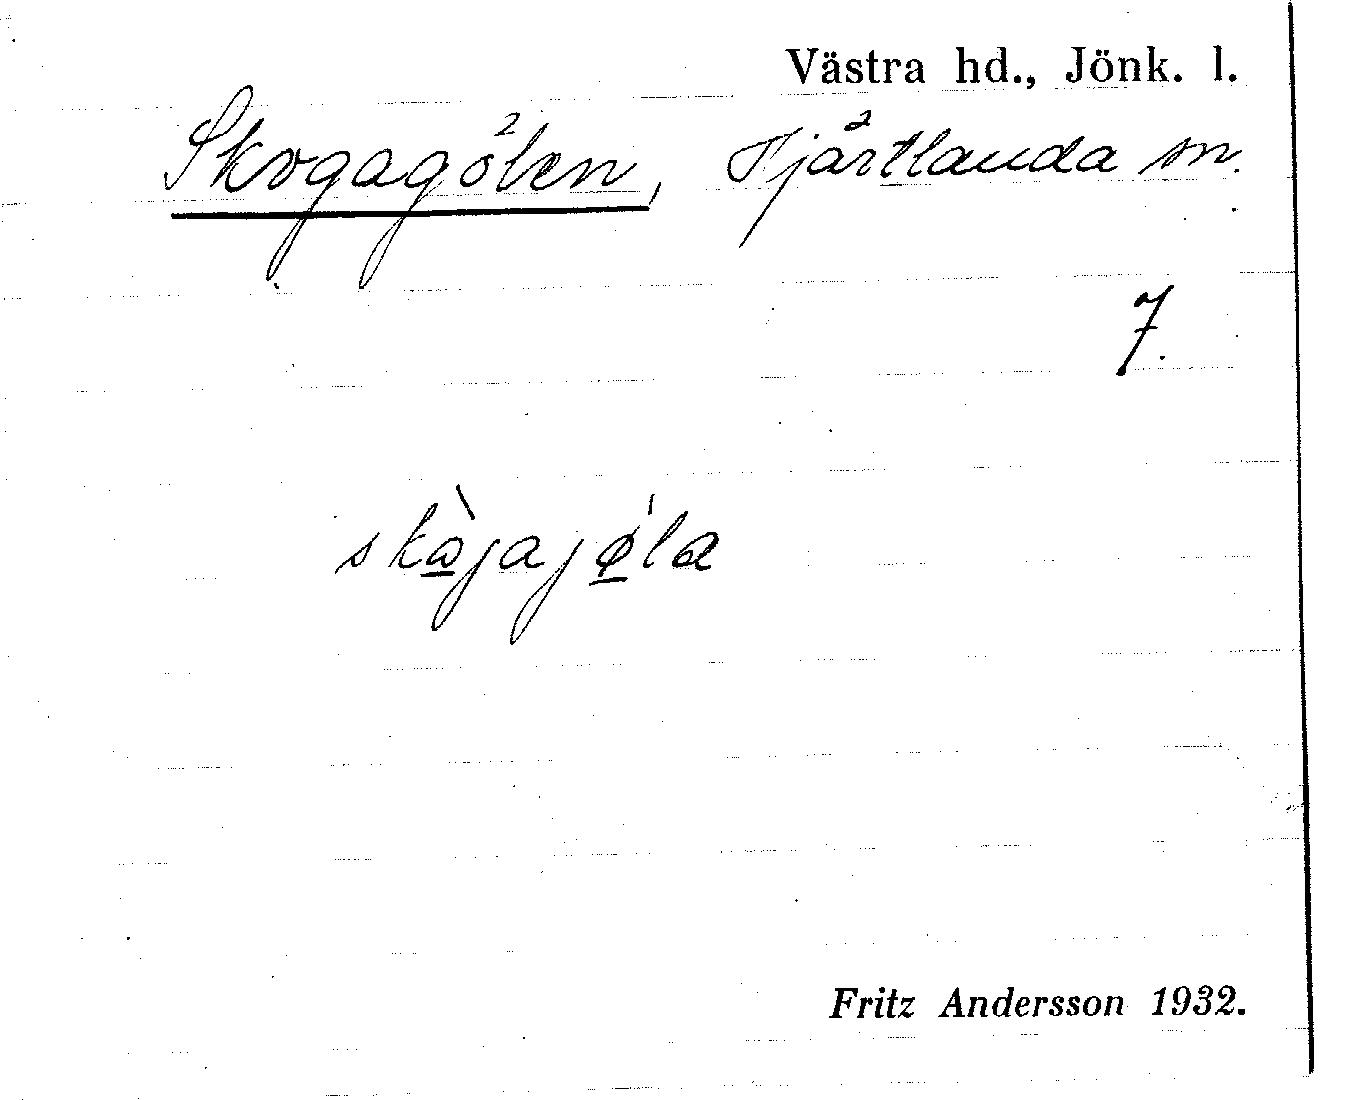 Västra hd., Jönk. l.
Skogagölen, Fjärtlanda sn.
7.
skòjajǿla
Fritz Andersson 1932.